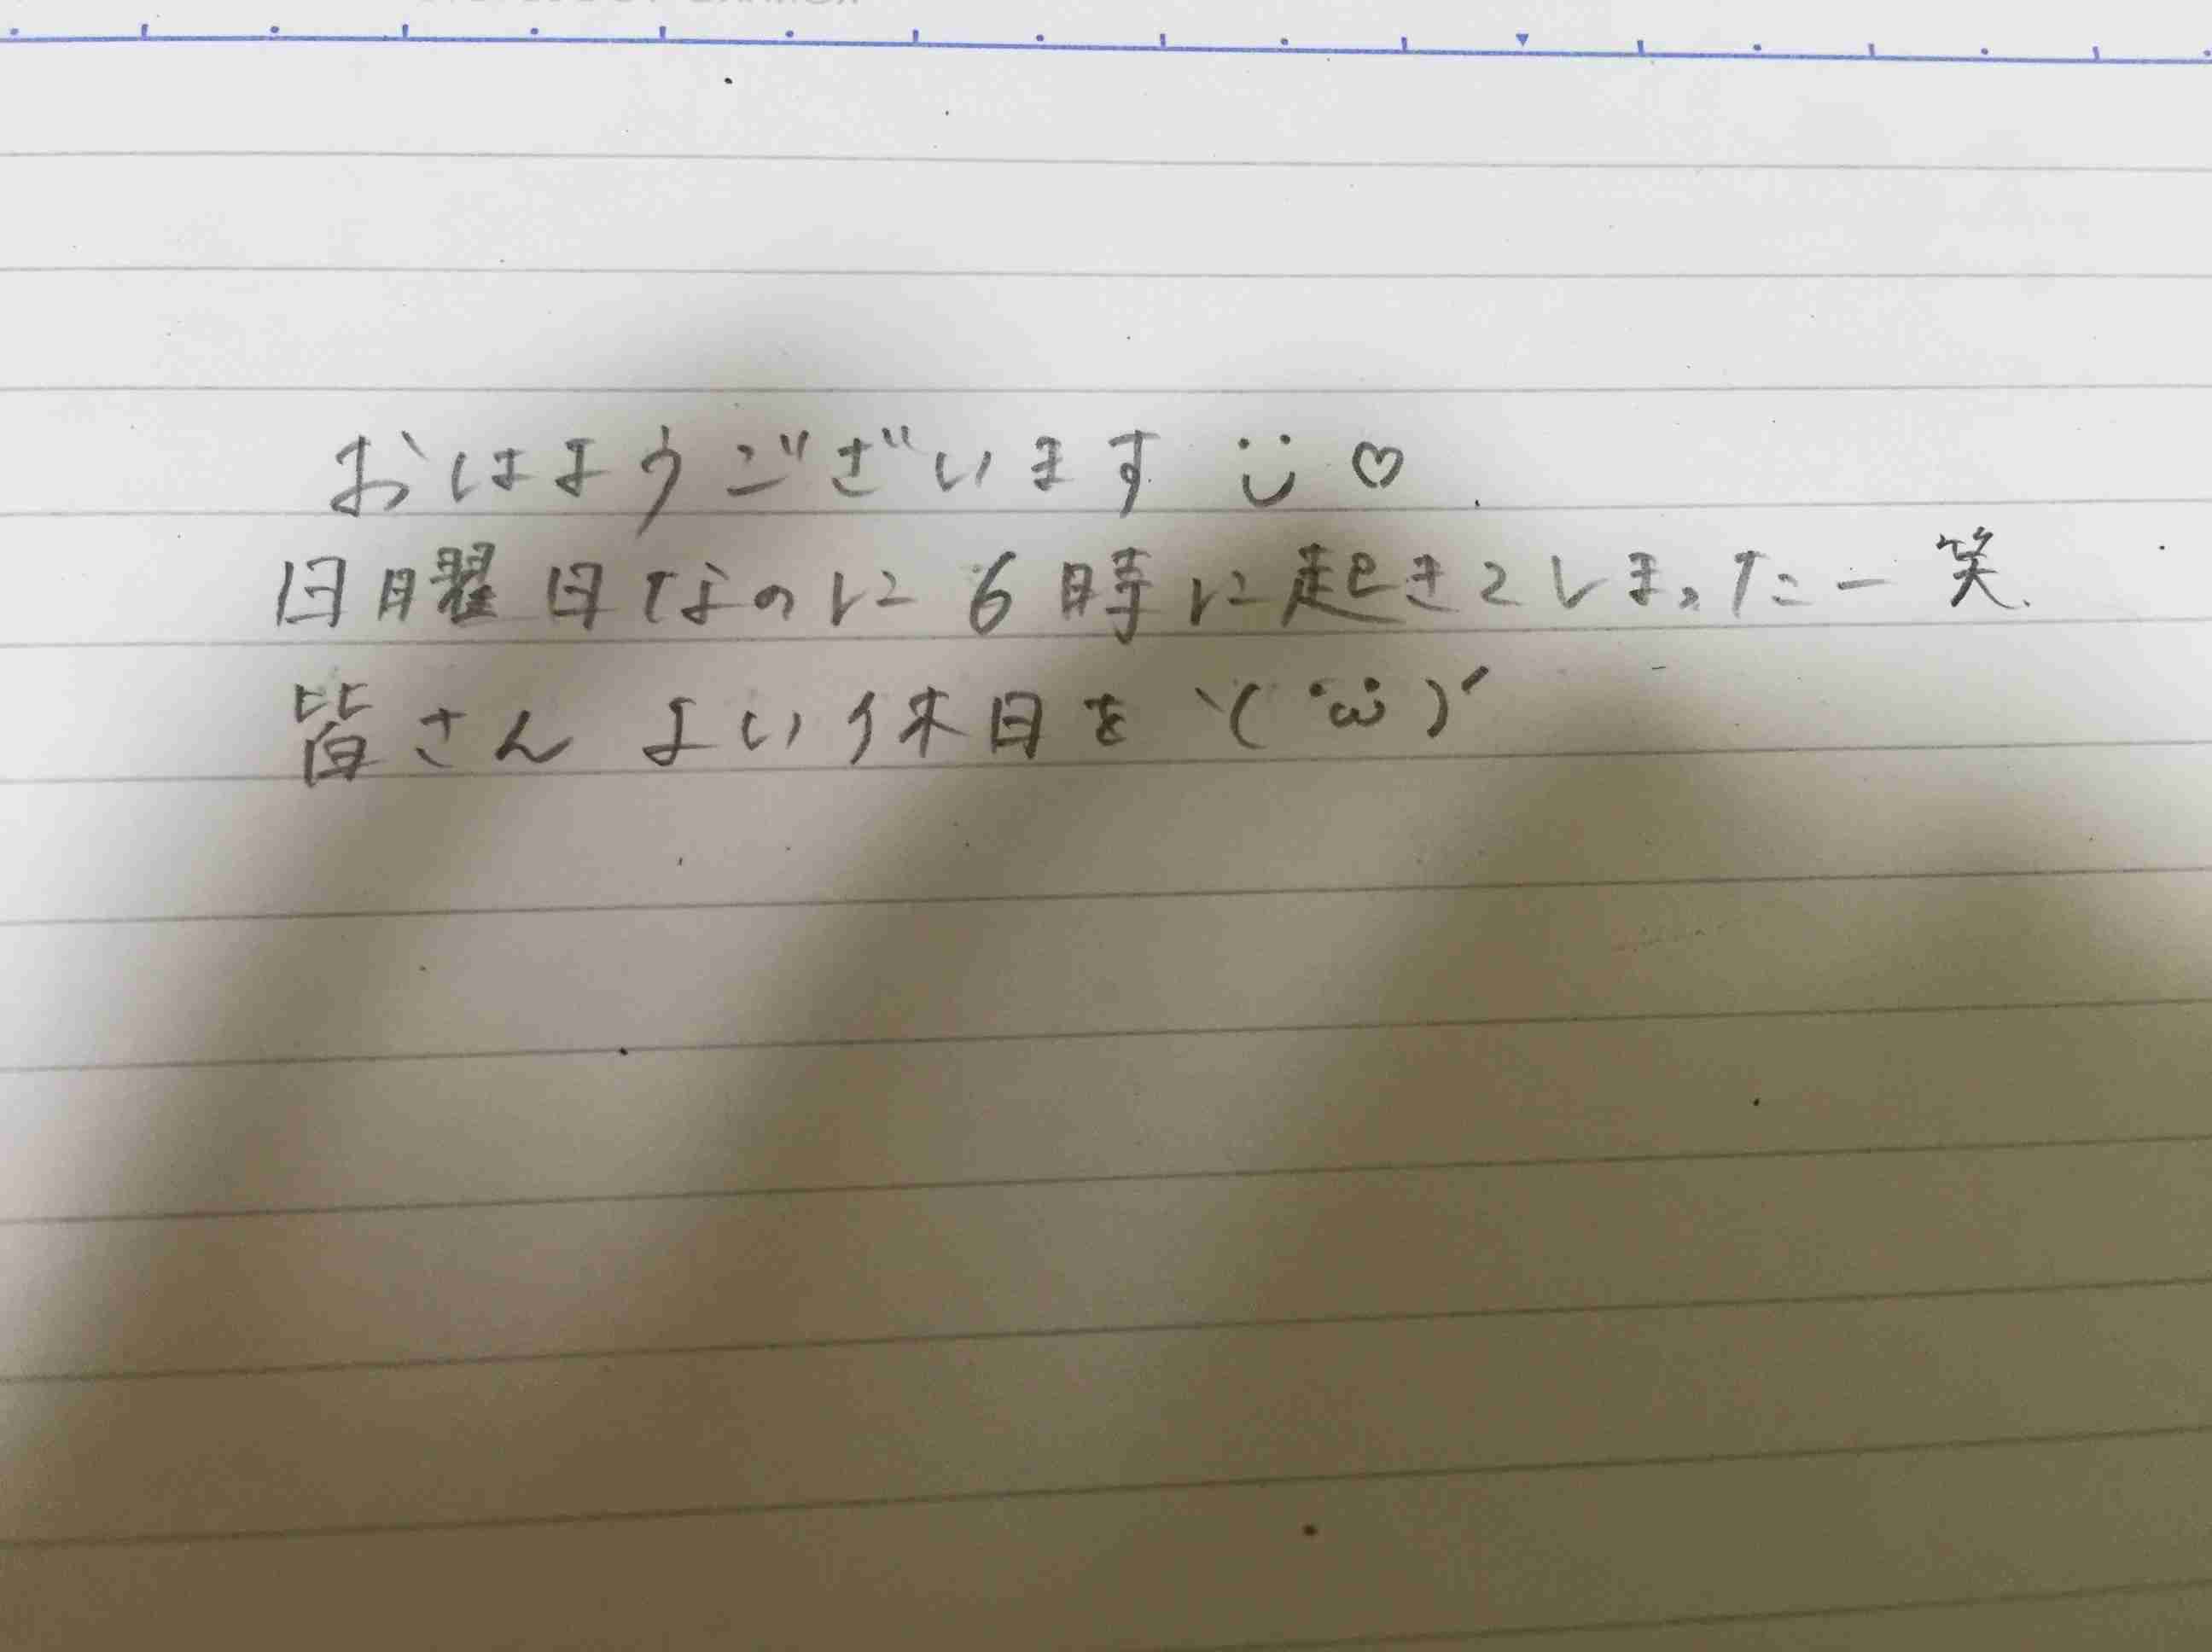 おはようございます ¨̮ ♡
日曜日なのに6時に起きてしまったー笑
皆さん よい休日を ヽ( ˙ω˙ )ﾉ